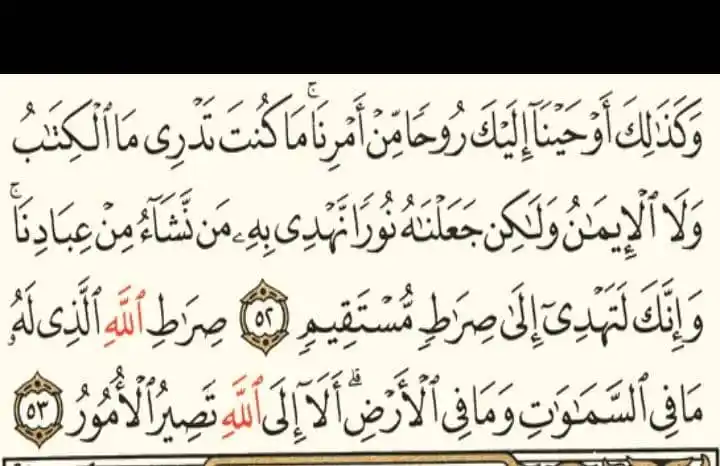 وَكَذَٰلِكَ أَوْحَيْنَآ إِلَيْكَ رُوحًا مِّنْ أَمْرِنَا ۚ مَا كُنتَ تَدْرِى مَا ٱلْكِتَٰبُ
وَلَا ٱلْإِيمَٰنُ وَلَٰكِن جَعَلْنَٰهُ نُورًا نَّهْدِى بِهِۦ مَن نَّشَآءُ مِنْ عِبَادِنَا ۚ
وَإِنَّكَ لَتَهْدِىٓ إِلَىٰ صِرَٰطٍ مُّسْتَقِيمٍ ٥٢ صِرَٰطِ ٱللَّهِ ٱلَّذِى لَهُۥ
مَا فِى ٱلسَّمَٰوَٰتِ وَمَا فِى ٱلْأَرْضِ ۗ أَلَآ إِلَى ٱللَّهِ تَصِيرُ ٱلْأُمُورُ ٥٣